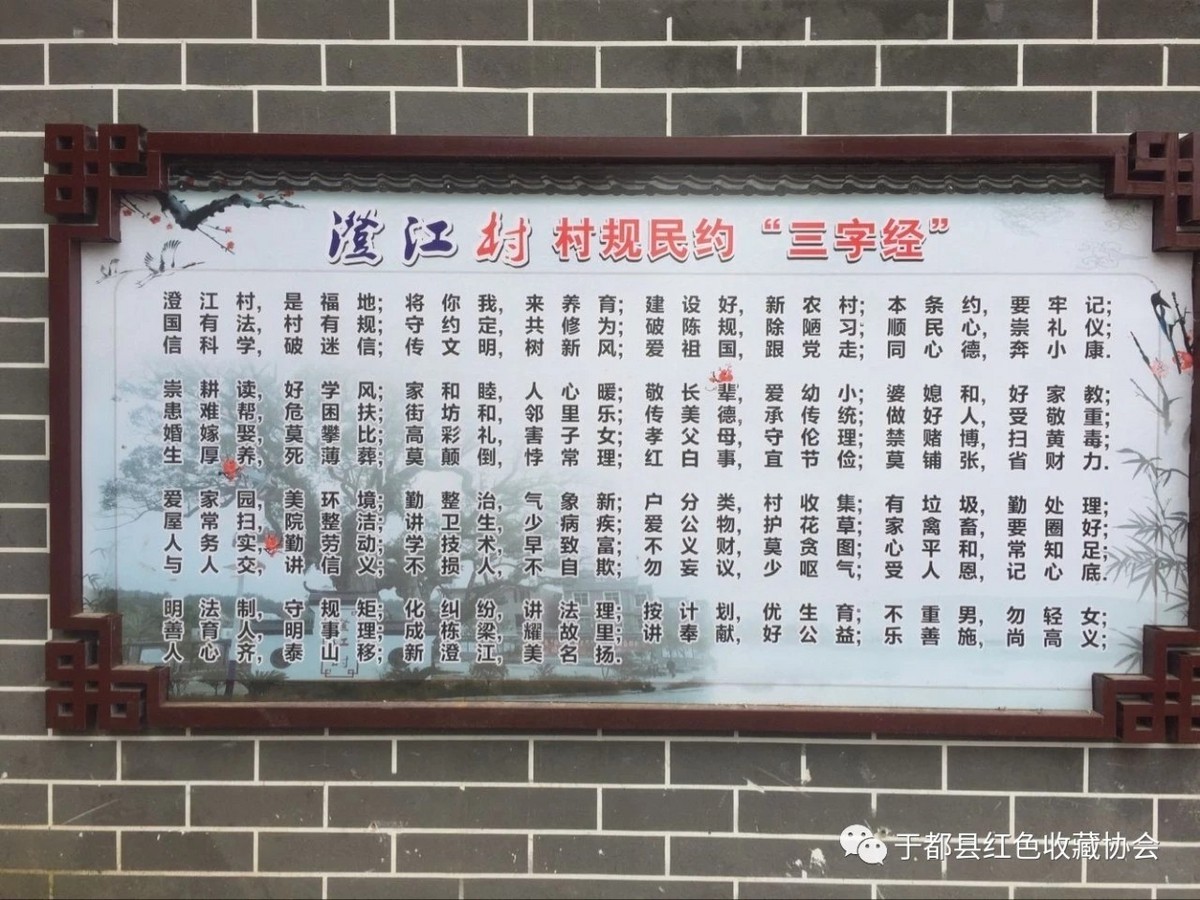 澄江村 村规民约“三字经”
澄江村，是福地；将你我，来养育；建设好，新农村；本条约，要牢记；
国有法，村有规；守约定，共修为；破陈规，除陋习；顺民心，崇礼仪；
信科学，破迷信；传文明，树新风；爱祖国，跟党走；同心德，奔小康．
崇耕读，好学风；家和睦，人心暖；敬长辈，爱幼小；婆媳和，好家教；
患难帮，危困扶；街坊和，邻里乐；传美德，承传统；做好人，受敬重；
婚嫁娶，莫攀比；高彩礼，害子女；孝父母，守伦理；禁赌博，扫黄毒；
生厚养，死薄葬；莫颠倒，悖常理；红白事，宜节俭；莫铺张，省财力．
爱家园，美环境；勤整治，气象新；户分类，村收集；有垃圾，勤处理；
屋常扫，院整洁；讲卫生，少病疾；爱公物，护花草；家禽畜，要圈好；
人务实，勤劳动；学技术，早致富；不义财，莫贪图；心平和，常知足；
与人交，讲信义；不损人，不自欺；勿妄议，少呕气；受人恩，记心底．
明法制，守规矩；化纠纷，讲法理；按计划，优生育；不重男，勿轻女；
善育人，明事理；成栋梁，耀故里；讲奉献，好公益；乐善施，尚高义；
人心齐，泰山移；新澄江，美名扬．
于都县红色收藏协会